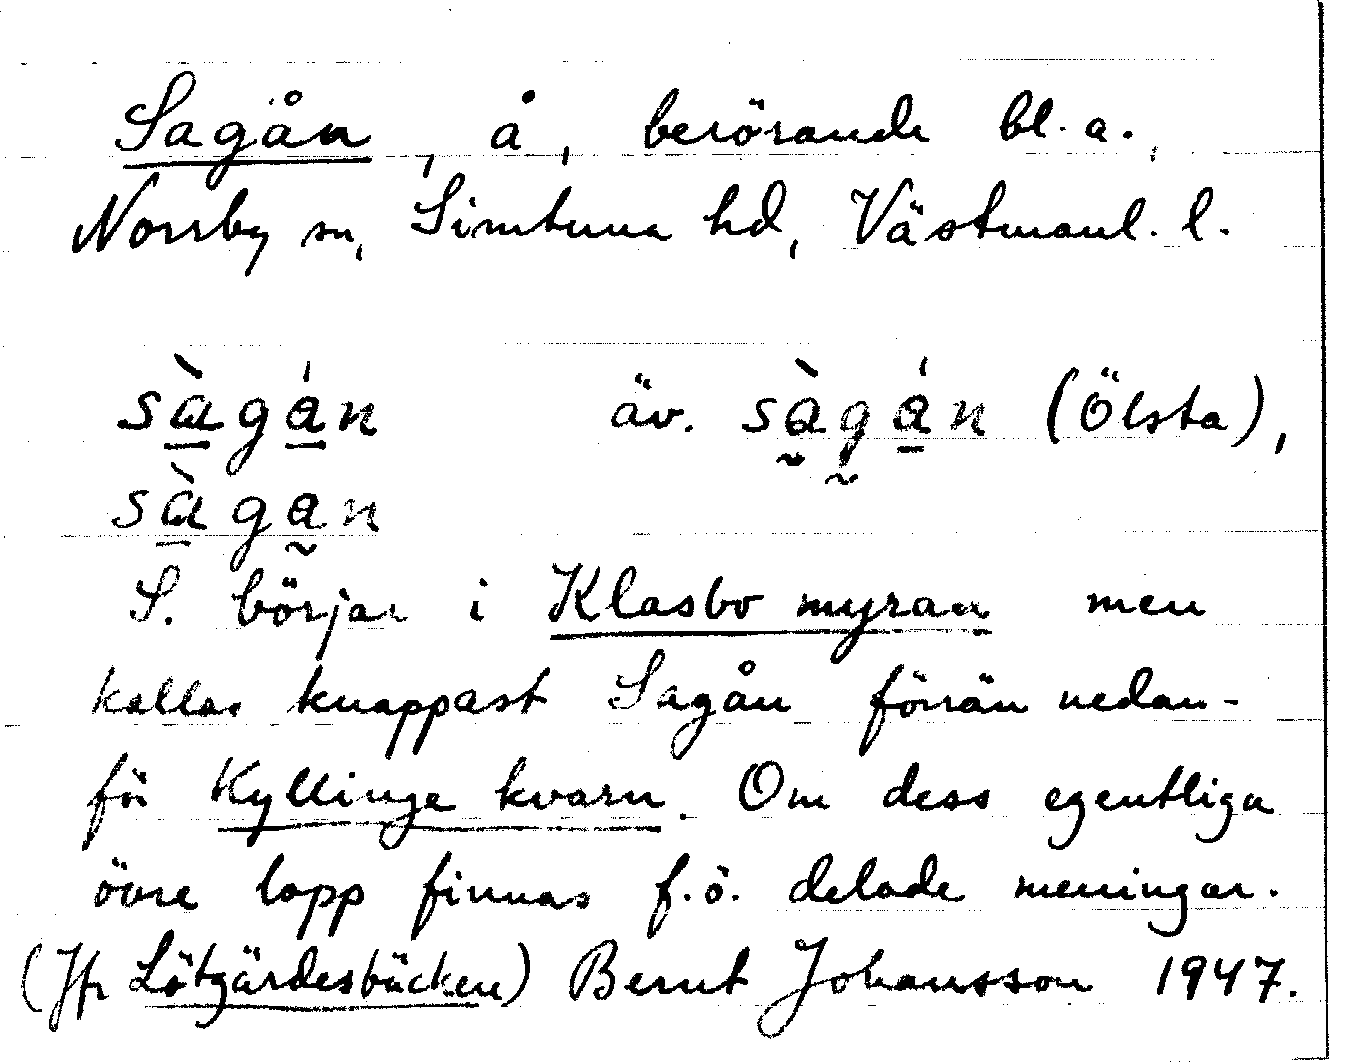 Sagån, å, berörande bl. a.,
Norrby sn, Simtuna hd, Västmanl. l.
sàgán äv. sàgán (Ölsta),
sàgan
S. börjar i Klasbo myran men
kallas knappast Sagån förrän nedan-
för Kyllinge kvarn. Om dess egentliga
övre lopp finnas f.ö. delade meningar.
(Jfr Lötgärdesbäcken) Bernt Johansson 1947.